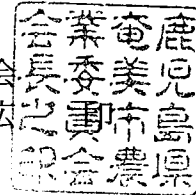 鹿児島県
奄美市農
業委員会
会長之印
印